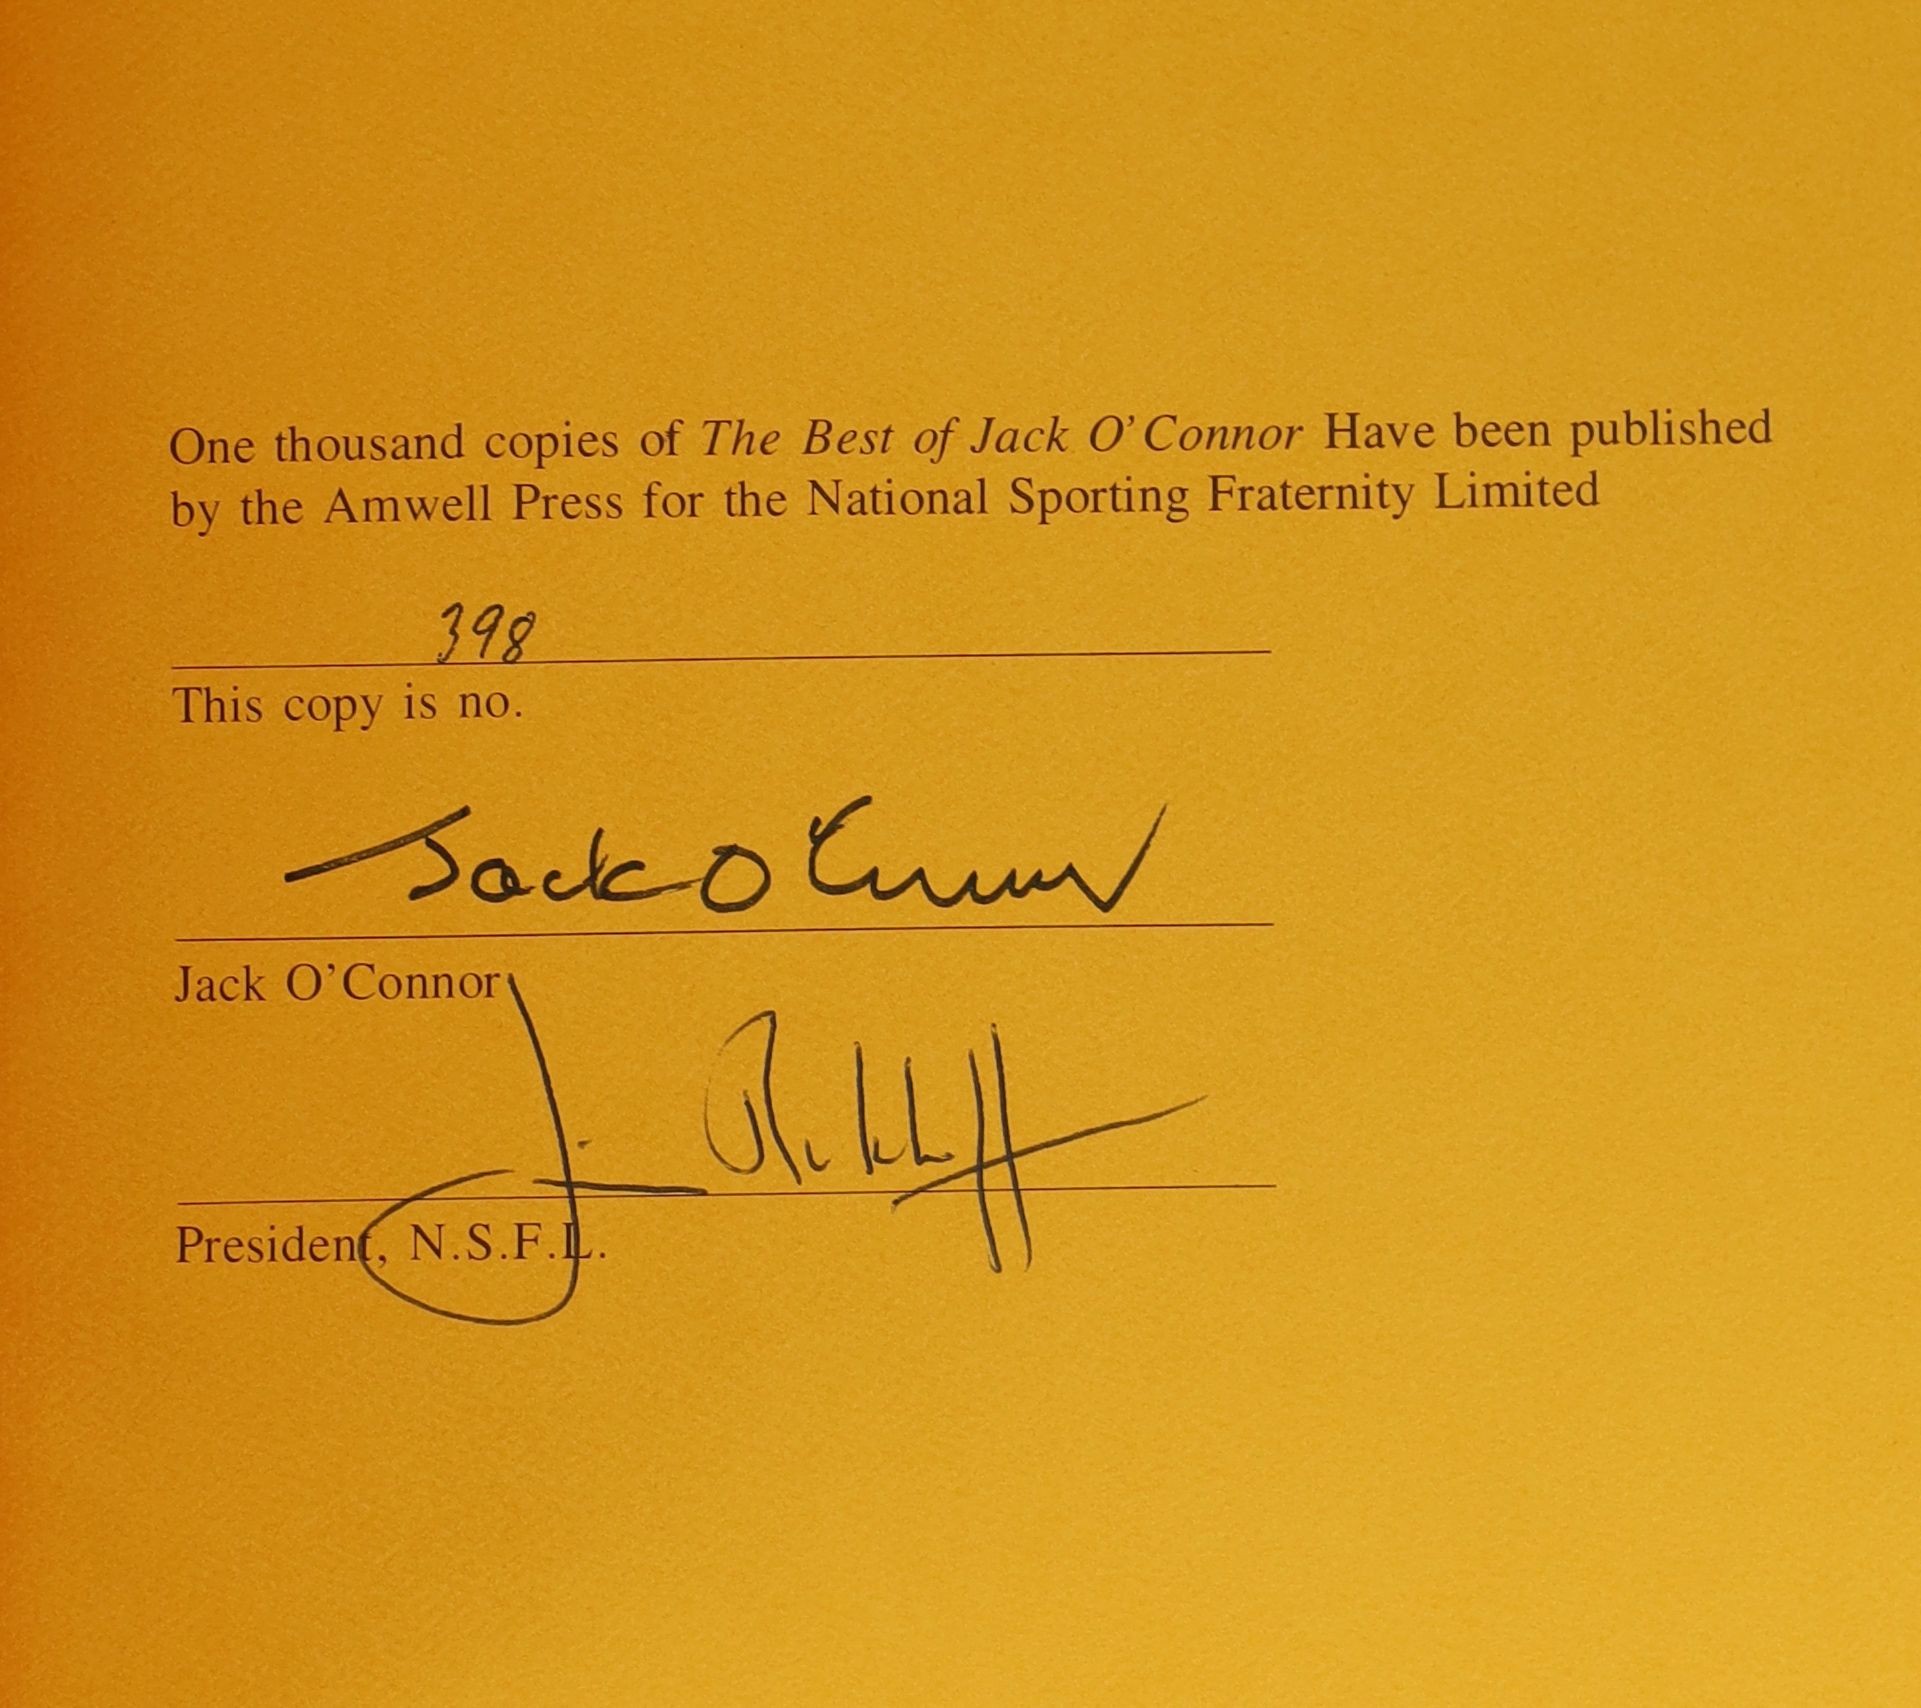 One thousand copies of The Best of Jack O'Connor Have been published
by the Amwell Press for the National Sporting Fraternity Limited
398
This copy is no.
Jack O'Connor
Jack O'Connor
Jim Rikhoff
President, N.S.F.L.